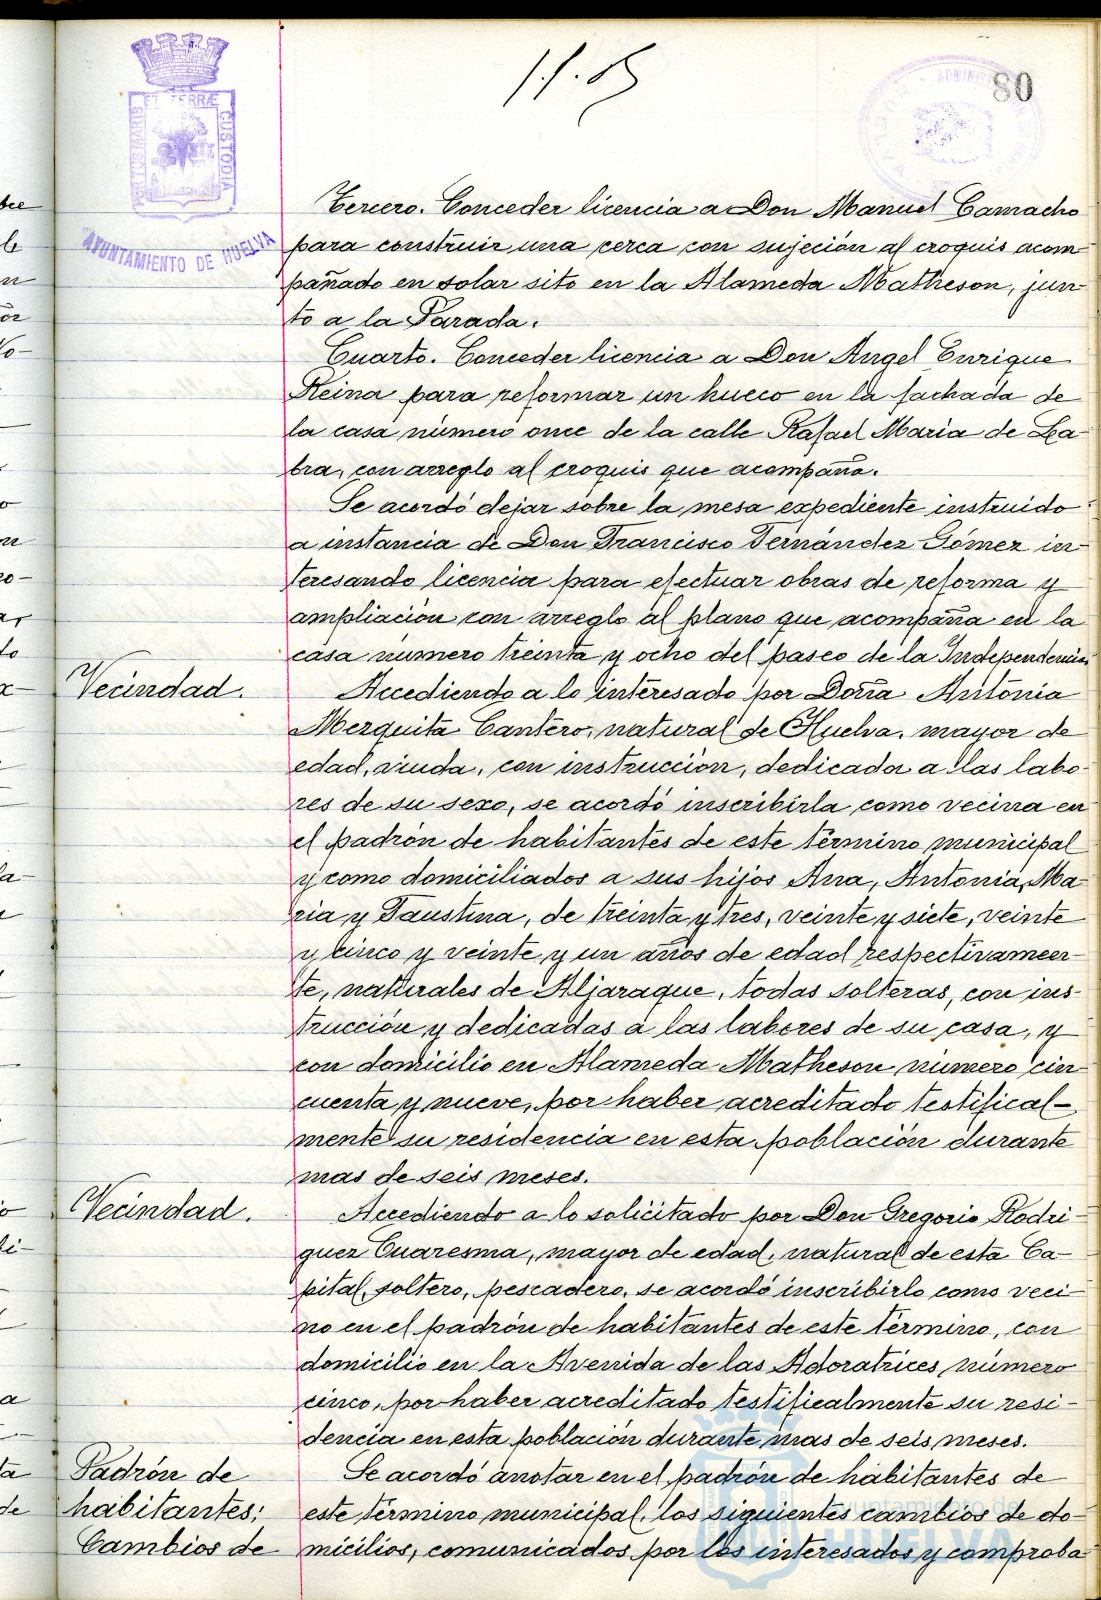 80
PORTUS MARIS ET TERRÆ CUSTODIA
AYUNTAMIENTO DE HUELVA
Tercero. Conceder licencia a Don Manuel Camacho
para construir una cerca con sujeción al croquis acom-
pañado en solar sito en la Alameda Matheson, jun-
to a la Parada.
Cuarto. Conceder licencia a Don Angel Enrique
Reina para reformar un hueco en la fachada de
la casa número once de la calle Rafael María de La-
bra, con arreglo al croquis que acompaña.
Se acordó dejar sobre la mesa expediente instruído
a instancia de Don Francisco Fernández Gómez in-
teresando licencia para efectuar obras de reforma y
ampliación con arreglo al plano que acompaña en la
casa número treinta y ocho del paseo de la Independencia
Vecindad. Accediendo a lo interesado por Doña Antonia
Mezquita Cantero, natural de Huelva, mayor de
edad, viuda, con instrucción, dedicada a las labo-
res de su sexo, se acordó inscribirla como vecina en
el padrón de habitantes de este término municipal
y como domiciliados a sus hijos Ana, Antonia, Ma-
ria y Faustina, de treinta y tres, veinte y siete, veinte
y cinco y veinte y un años de edad respectivamen-
te, naturales de Aljaraque, todas solteras, con ins-
trucción y dedicadas a las labores de su casa, y
con domicilio en Alameda Matheson número cin-
cuenta y nueve, por haber acreditado testifical-
mente su residencia en esta población durante
mas de seis meses.
Vecindad. Accediendo a lo solicitado por Don Gregorio Rodri-
guez Cuaresma, mayor de edad, natural de esta Ca-
pital, soltero, pescadero, se acordó inscribirlo como veci-
no en el padrón de habitantes de este término, con
domicilio en la Avenida de las Adoratrices número
cinco, por haber acreditado testificalmente su resi-
dencia en esta población durante mas de seis meses.
Padrón de Se acordó anotar en el padrón de habitantes de
habitantes; este término municipal, los siguientes cambios de do-
Cambios de micilios, comunicados por los interesados y comproba-
ayuntamiento de
HUELVA